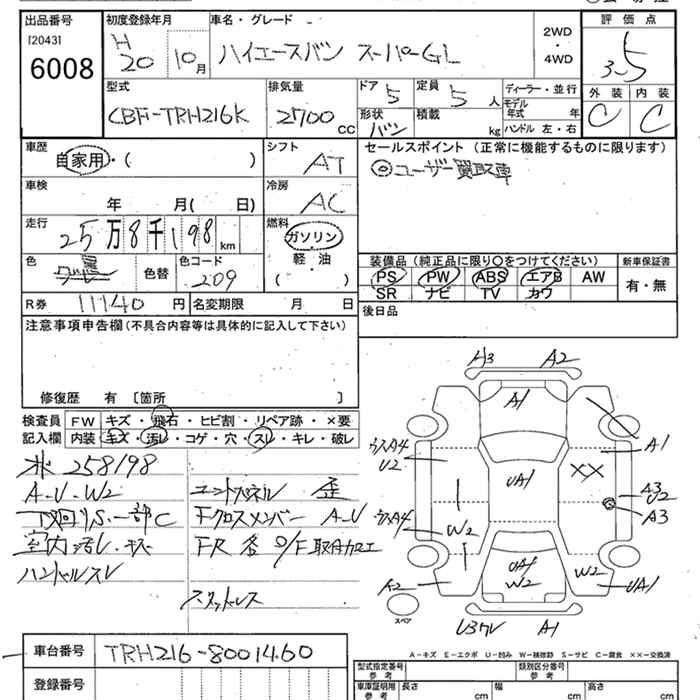 出品番号 初度登録年月 車名・グレード 2WD・4WD 評価点
[2043] H20 10月 ハイエースバン スーパーGL 3.5
6008
型式 排気量 ドア 5 定員 5人 ディーラー・並行 外装 内装
CBF-TRH216K 2700CC 形状 バン 積載 kg モデル年式 年 C C
ハンドル 左・右
車歴 自家用・( ) シフト AT セールスポイント (正常に機能するものに限ります)
◎ユーザー買取車
車検 年 月( 日) 冷房 AC
走行 25万8千198km 燃料 ガソリン 軽・油 ( )
色 色替 色コード 209
装備品 (純正品に限り○をつけてください) 新車保証書
PS PW ABS エアB AW 有・無
SR ナビ TV カワ
R券 11140円 名変期限 月 日 後日品
注意事項申告欄 (不具合内容等は具体的に記入して下さい)
修復歴 有 [箇所 ]
検査員 FW キズ・飛石・ヒビ割・リペア跡・×要
記入欄 内装 キズ・汚レ・コゲ・穴・スレ・キレ・破レ
258198
A-U-W2
下回りS.一部C
室内汚レ.キズ
ハンドルスレ
エンドパネル 歪
Fクロスメンバー A-U
FR 各 O/F 取付加工
スタッドレス
A3 A2
A1
ウスA4 A1
U2
UA1 XX
A3
U2
A3
ウスA4
W2
UA1
W2 W2
A2 UA1
スペア
U3ワレ A1
A-キズ E-エクボ U-凹み W-補修跡 S-サビ C-腐食 ××-交換済
車台番号 TRH216-8001460
登録番号
型式指定番号 参考 類別区分番号 参考
車庫証明用 参考 長さ cm 幅 cm 高さ cm